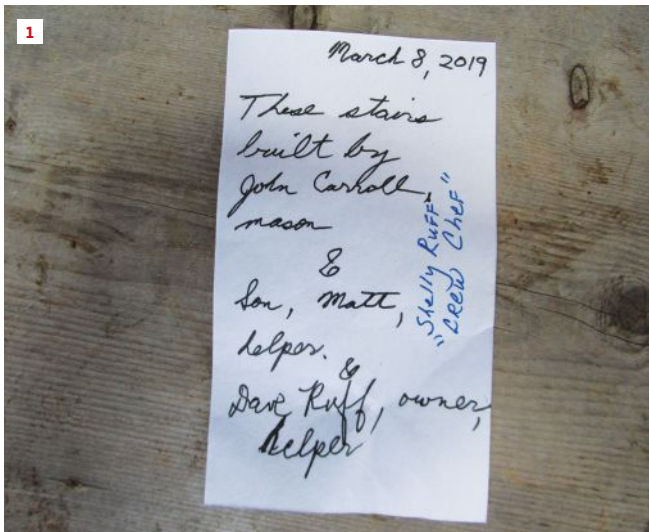 1
March 8, 2019
These stairs
built by
John Carroll,
mason
&
Son, Matt,
helper.
&
Dave Ruff, owner,
helper
Shelly Ruff
"CREW Chef"